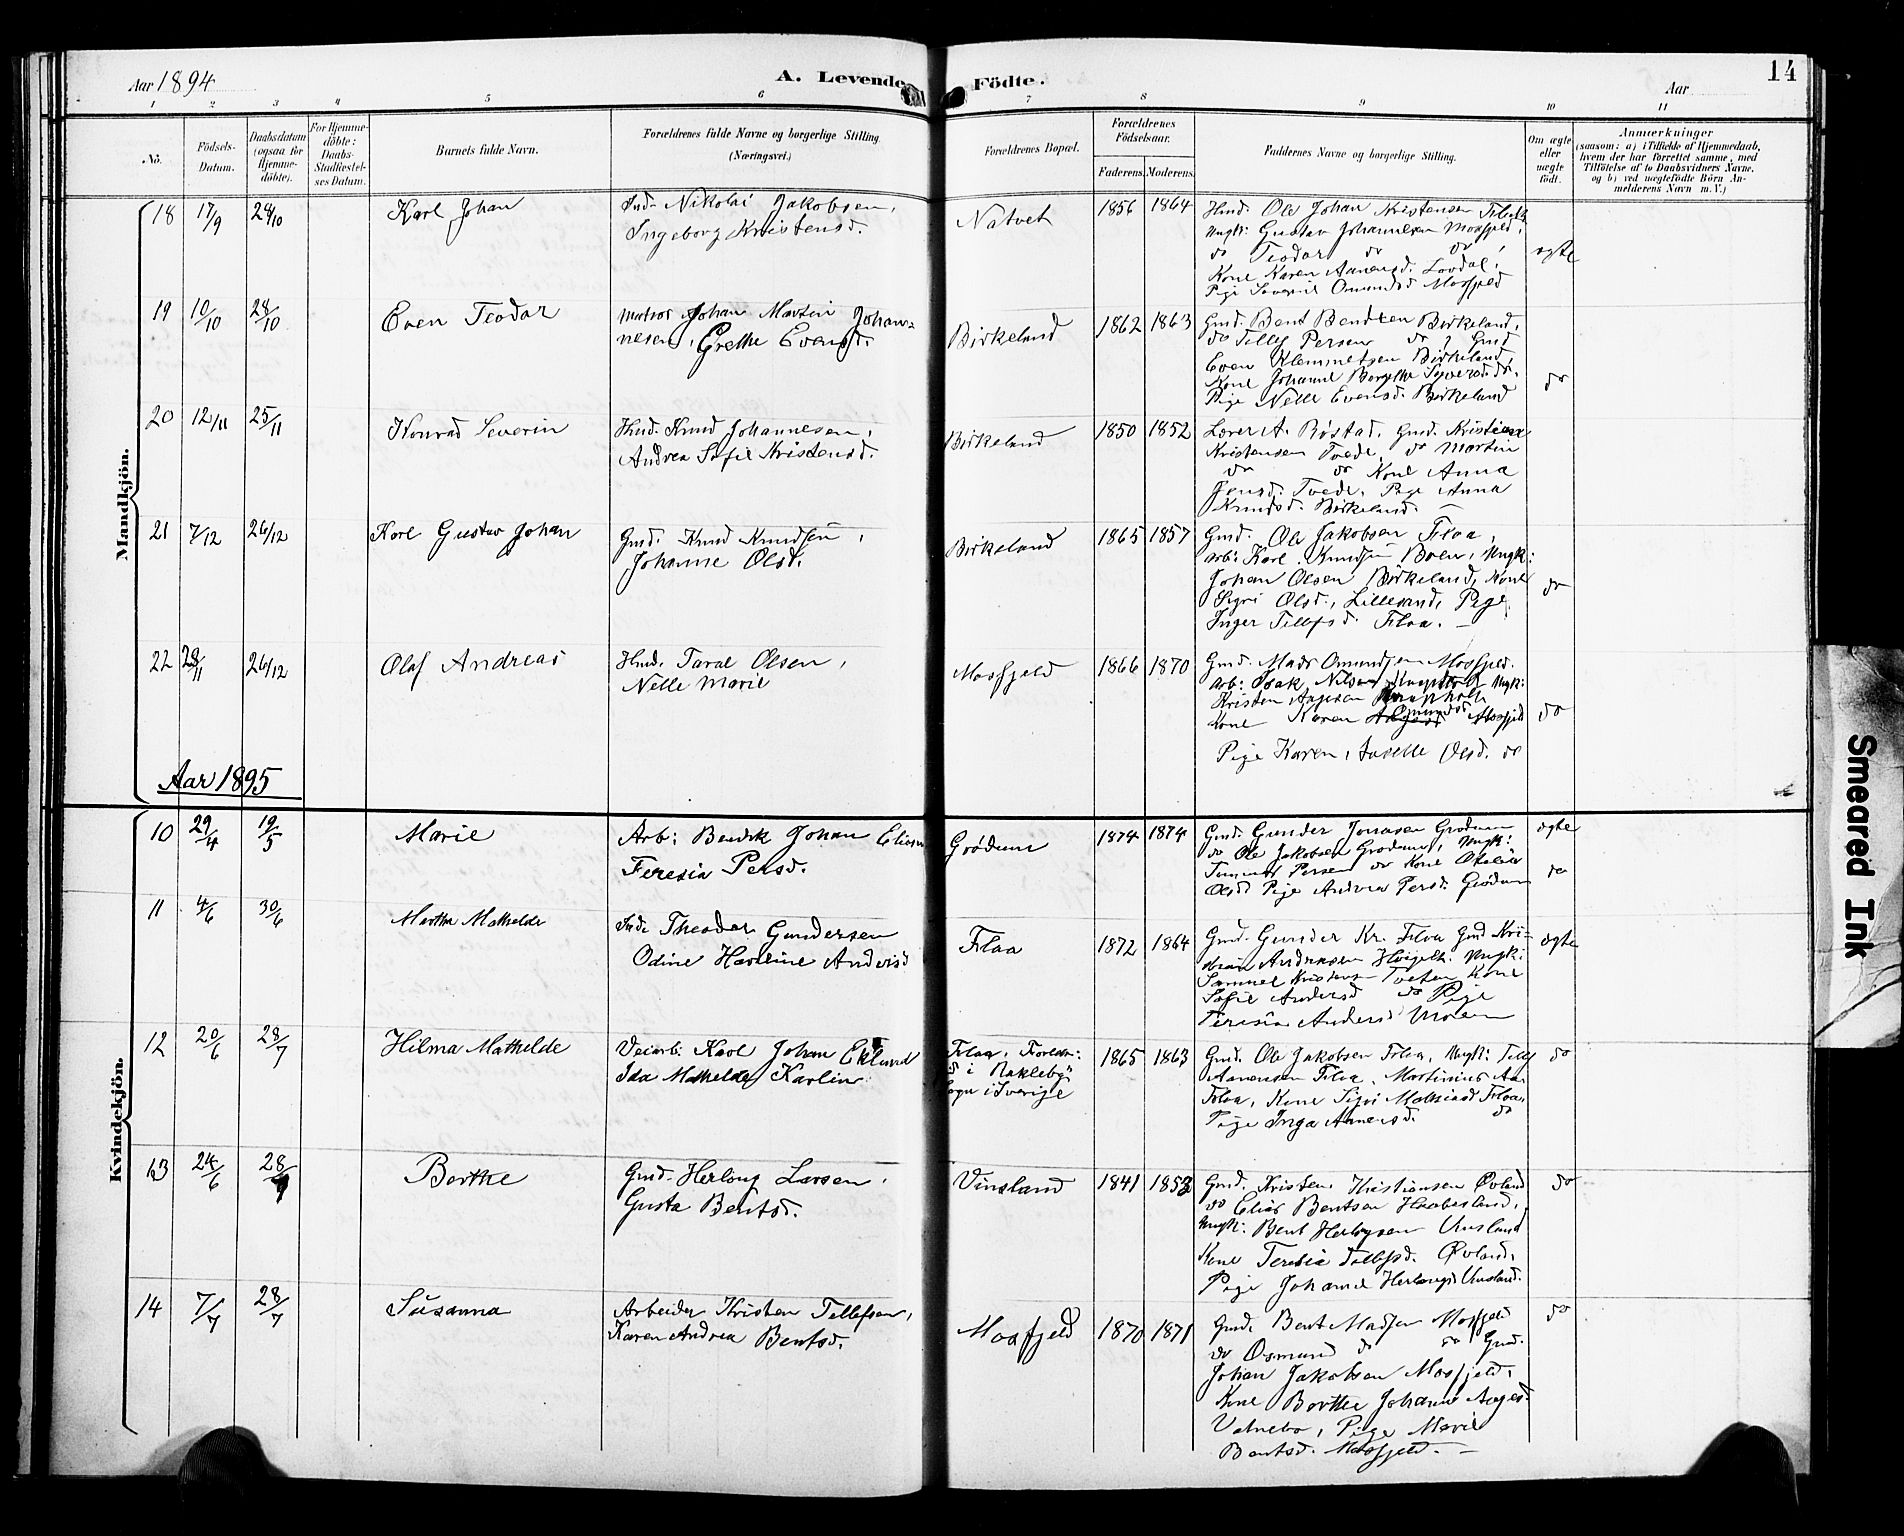 Aar 1894
A. Levende Födte.
Aar
14
1 2 3 4 5 6 7 8 9 10 11
No.
Födsels-Datum.
Daabsdatum (ogsaa for Hjemme-döbte).
For Hjemme-döbte: Daabs-Stadfæstel-ses Datum.
Barnets fulde Navn.
Forældrenes fulde Navne og borgerlige Stilling (Næringsvei.)
Forældrenes Bopæl.
Forældrenes Födselsaar.
Faderens. Moderens.
Faddernes Navne og borgerlige Stilling.
Om ægte eller uægte født.
Anmærkninger
(saasom: a) i Tilfælde af Hjemmedaab,
hvem der har forrettet samme, med
Tilföielse af to Daabsvidners Navne,
og b) ved uægtefödte Börn An-
melderens Navn m. V.)
Mandkjön.
18 17/9 28/10 Karl Johan
Nikolai Jakobsen,
Ingeborg Kristensd.
Natvet 1856 1864
Hmd. Ole Johan Kristensen
Ungk: Gustav Johannesen Mosfjeld,
do Teodor do do,
Kone Karen Aanensd. Lovdal,
Pige Severine Omundsd Mosfjeld
ægte
19 10/10 28/10 Even Teodor
Matros Johan Martin Johan=
nesen, Grethe Evensd.
Birkeland 1862 1863
Gmd. Bent Bendtsen Birkeland,
do Tellef Persen do, Gmd
Even Klemmetsen Birkeland,
Kone Johanne Berthe Syversd. do.
Pige Nelle Evensd. Birkeland
do
20 12/11 25/11 Konrad Severin
Hmd. Knud Johannesen,
Andrea Sofie Kristensd.
Birkeland 1850 1852
Lærer A. Røstad, Gmd. Kristian
Kristensen Tvede, do Martin
do do Kone Anna
Jensd. Tvede, Pige Anna
Knudsd. Birkeland. —
21 7/12 26/12 Karl Gustav Johan
Gmd. Knud Knudsen,
Johanne Olsd.
Birkeland 1865 1857
Gmd. Ole Jakobsen Flaa,
Arb: Karl Knudsen Boen, Ungk:
Johan Olsen Birkeland, Kone
Sigri Olsd., Lillesand, Pige
Inger Tellefsd. Flaa. —
do
22 28/11 26/12 Olaf Andreas
Hmd. Taral Olsen,
Nelle Marie
Mosfjeld 1866 1870
Gmd. Mads Omundsen Mosfjeld.
Arb: Isak Nilsen Ungk:
Kristen Aagesen
Kone Karen Omundsd Mosfjeld
Pige Karen, Olsd. do
do
Aar 1895
Kvindekjön.
10 29/4 19/5 Marie
Arb: Bendik Johan Eliasen
Teresia Persd.
Grødum 1874 1874
Gmd. Gunder Jonasen Grødum
do Ole Jakobsen Grødum, Ungk:
Persen do Kone Otelia
Olsd Pige Andrea Persd. Grødum
ægte
do
11 4/6 30/6 Marthe Mathilde
Theodor Gundersen
Odine Andrisd
Flaa 1872 1864
Gmd. Gunder Kr. Flaa Gmd Kri-
stian Andreasen Ungk:
Samuel Kristens- Tveten Kone
Sofie Andersd do Pige
Teresia Andersd Moen
ægte
12 20/6 28/7 Hilma Mathilde
Veiarb: Karl Johan Eklund
Ida Mathilde Karlin
Flaa, Forældr:
i Nakleby
Sogn i Sverige
1865 1863
Gmd. Ole Jakobsen Flaa, Ungk: Tellef
Aanensen Flaa, Martinius Aa.
Flaa, Kone Siri Mathiasd Flaa,
Pige Inga Aanensd. do
do
13 24/6 28/7 Berthe
Gmd. Herlong Larsen,
Gusta Bentsd.
Vinsland 1841 1853
Gmd. Kristen Kristiansen Øvland
do Elias Bentsen Haabesland,
Ungk: Bent Herlogsen Vinsland
Kone Teresia Tellefsd. Øvland,
Pige Johanne Herlougsd Vinsland.
do
14 7/7 28/7 Susanna
Arbeider Kristen Tellefsen,
Karen Andrea Bentsd.
Mosfjeld 1870 1871
Gmd. Bent Madsen Mosfjeld
do Osmund do do, Gmd.
Johan Jakobsen Mosfjeld,
Kone Berthe Johanne Aagesd.
Vatnebo, Pige Marie
Bentsd. Mosfjeld. —
do
Smeared Ink